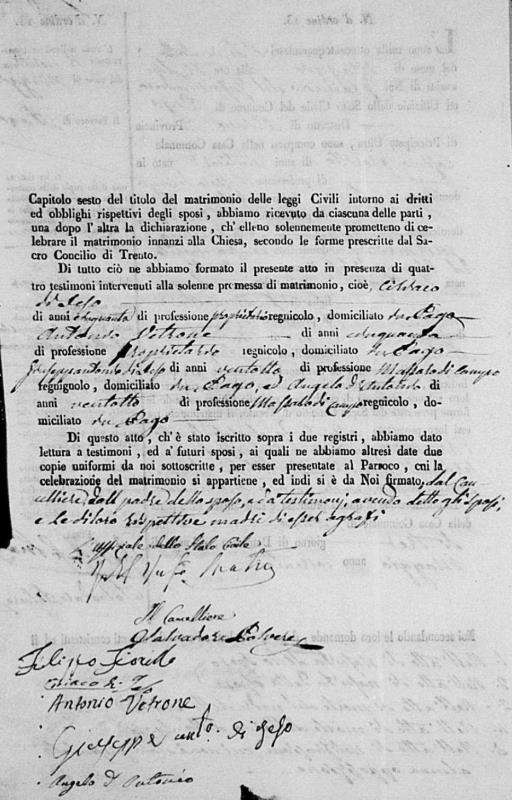 Capitolo sesto del titolo del matrimonio delle leggi Civili intorno ai dritti
ed obblighi rispettivi degli sposi, abbiamo ricevuto da ciascuna delle parti,
una dopo l'altra la dichiarazione, ch' elleno solennemente promettono di ce-
lebrare il matrimonio innanzi alla Chiesa, secondo le forme prescritte dal Sa-
cro Concilio di Trento.
Di tutto ciò ne abbiamo formato il presente atto in presenza di quat-
tro testimoni intervenuti alla solenne promessa di matrimonio, cioè, Ciriaco
di Jeso
di anni cinquanta di professione proprietario regnicolo, domiciliato in Pago
Antonio Vetrone di anni cinquanta
di professione Proprietario regnicolo, domiciliato in Pago
Giuseppantonio di Jeso di anni ventotto di professione Massaro di campo
regnignolo, domiciliato in Pago, ed Angelo d'Antonio di
anni ventotto di professione Massaro di campo regnicolo, do-
miciliato in Pago
Di questo atto, ch'è stato iscritto sopra i due registri, abbiamo dato
lettura a testimoni, ed a' futuri sposi, ai quali ne abbiamo altresì date due
copie uniformi da noi sottoscritte, per esser presentate al Paroco, cui la
celebrazione del matrimonio si appartiene, ed indi si è da Noi firmato, dal Can-
celliere, dal padre dello sposo, e da testimonj, avendo detto gli sposi,
e le di loro rispettive madri di esser
Uffiziale dello Stato Civile
Il Cancelliere
Salvadore Polvere
Filippo
Ciriaco di Jeso
Antonio Vetrone
Giuseppe anto. di Jeso
Angelo D Antonio